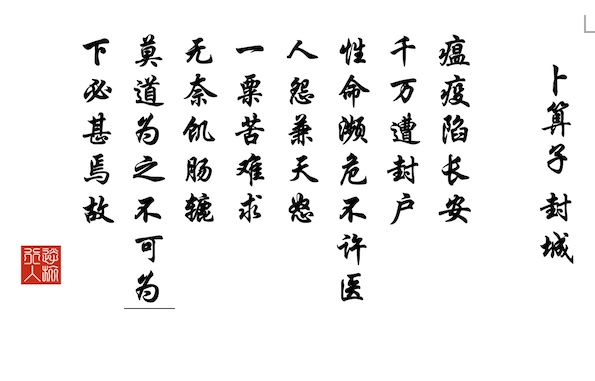 卜算子 封城
瘟疫陷长安
千万遭封户
性命濒危不许医
人怨兼天怒
一粟苦难求
无奈饥肠辘
莫道为之不可为
下必甚焉故